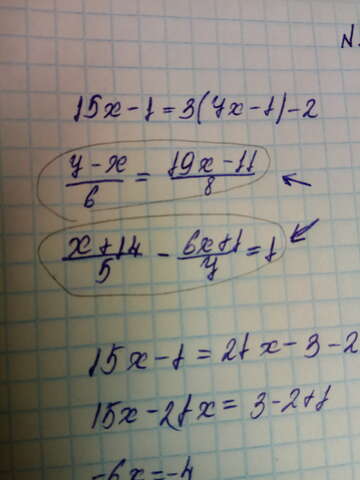 N.
15x-1=3(7x-1)-2
(7-x)/6 = (19x-11)/8
(x+14)/5 - (6x+1)/7 = 1
15x-1=21x-3-2
15x-21x=3-2+1
-6x=-4